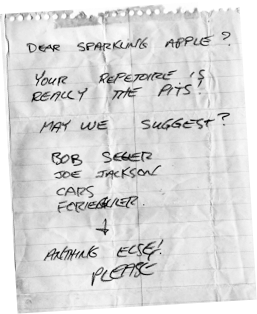 DEAR SPARKLING APPLE?
YOUR REPETOIRE IS
REALLY THE PITS!
MAY WE SUGGEST?
BOB SEGER
JOE JACKSON
CARS
↓
ANYTHING ELSE!
PLEASE